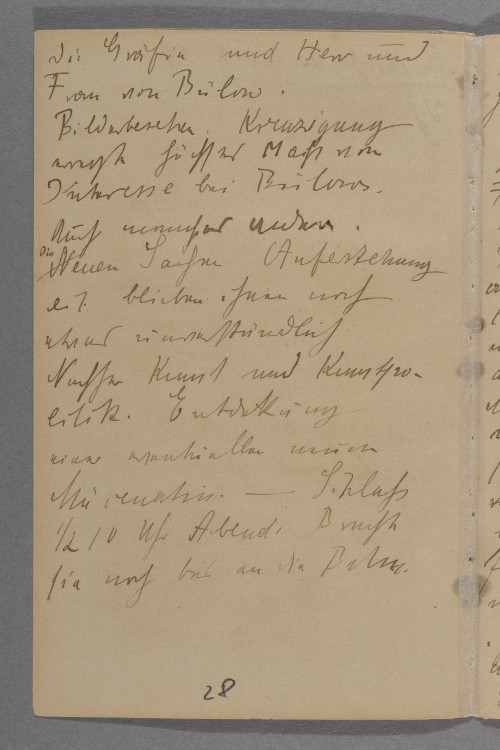 Die Gräfin und Herr und
Frau von Bülow.
Bilderbesehen. Kreuzigung
erregte höchstes Maß von
Interesse bei Bülows.
Auch manches andere.
Die Neuen Sachen Auferstehung
etc. blieben ihnen noch
etwas unverständlich
Nachher Kunst und Kunstpo-
litik. Entdeckung
einer eventuellen neuen
Mäcenatin. — Schluß
1/2 10 Uhr Abends. Brachte
sie noch bis an die Bahn.
28